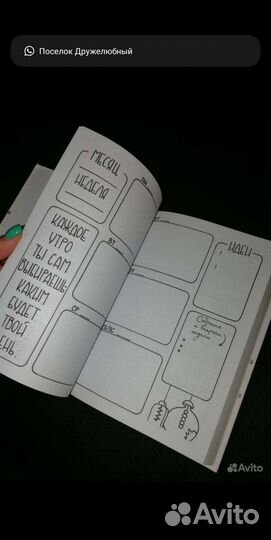 Поселок Дружелюбный
МЕСЯЦ
НЕДЕЛЯ
КАЖДОЕ
УТРО
ТЫ САМ
ВЫБИРАЕШЬ
КАКИМ
БУДЕТ
ТВОЙ
ДЕНЬ
ПН
ВТ
СР
ИДЕИ
События
и встречи
недели
Avito
Avito